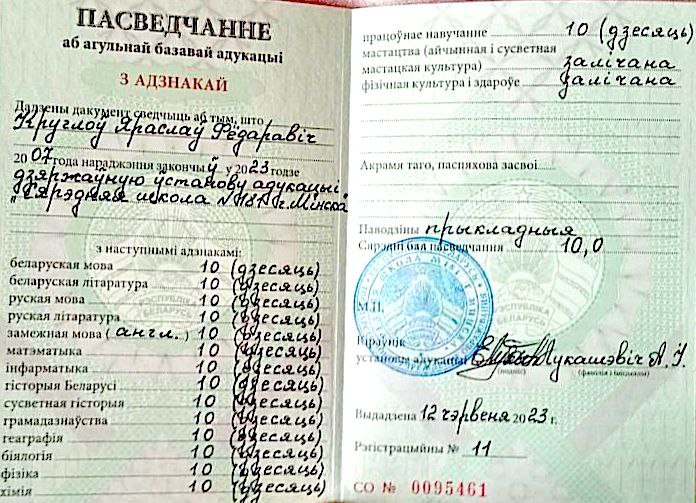 ПАСВЕДЧАННЕ
аб агульнай базавай адукацыі
З АДЗНАКАЙ
Дадзены дакумент сведчыць аб тым, што
Круглоў Яраслаў Фёдаравіч
2007 года нараджэння закончыў у 2023 годзе
дзяржаўную ўстанову адукацыі
"Сярэдняя школа №187 г. Мінска
з наступнымі адзнакамі:
беларуская мова 10 (дзесяць)
беларуская літаратура 10 (дзесяць)
руская мова 10 (дзесяць)
руская літаратура 10 (дзесяць)
замежная мова (англ.) 10 (дзесяць)
матэматыка 10 (дзесяць)
інфарматыка 10 (дзесяць)
гісторыя Беларусі 10 (дзесяць)
сусветная гісторыя 10 (дзесяць)
грамадазнаўства 10 (дзесяць)
геаграфія 10 (дзесяць)
біялогія 10 (дзесяць)
фізіка 10 (дзесяць)
хімія 10 (дзесяць)
РЭСПУБЛІКА
БЕЛАРУСЬ
працоўнае навучанне 10 (дзесяць)
мастацтва (айчынная і сусветная
мастацкая культура) залічана
фізічная культура і здароўе залічана
Акрамя таго, паспяхова засвоі
Паводзіны прыкладныя
Сярэдні бал пасведчання 10,0
РЭСПУБЛІКА
БЕЛАРУСЬ
М.П.
Кіраўнік
установы адукацыі Лукашэвіч А.У.
(подпіс) (фамілія і ініцыялы)
Выдадзена 12 чэрвеня 2023 г.
Рэгістрацыйны № 11
СО № 0095461